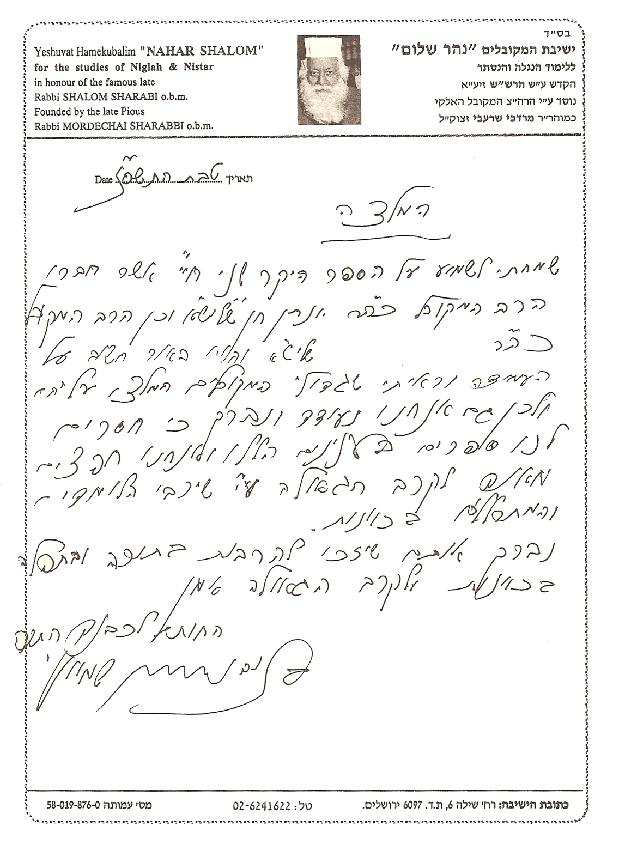 בס״ד
Yeshuvat Hamekubalim "NAHAR SHALOM"
for the studies of Niglah & Nistar
in honour of the famous late
Rabbi SHALOM SHARABI o.b.m.
Founded by the late Pious
Rabbi MORDECHAI SHARABBI o.b.m.
ישיבת המקובלים ״נהר שלום״
ללימוד הנגלה והנסתר
הקדש ע״ש הרש״ש זיע״א
נוסד ע״י הרה״צ המקובל האלקי
כמוהר״ר מרדכי שרעבי זצוק״ל
תאריך טבת Date
המלצה
שמחתי לשמוע על הספר היקר אשר חברו
הרב המקובל כה״ר וכן הרב המקובל
כה״ר שליט״א והוא באור חשוב על
העמידה וראיתי שגדולי המקובלים המליצו עליהם
ולכן גם אנחנו נעודד ונברך כי חסרים
לנו ספרים בענינים הללו ואנחנו חפצים
לקרב הגאולה ע״י שירבו הלומדים
והמתפללים בכוונות.
נברך אותם שיזכו להרבות בתורה ובתפלה
בכוונות ולקרב הגאולה אמן
החותם לכבוד התורה
כתובת הישיבה: רח׳ שילה 6, ת.ד. 6097 ירושלים. טל: 02-6241622 מס׳ עמותה 58-019-876-0